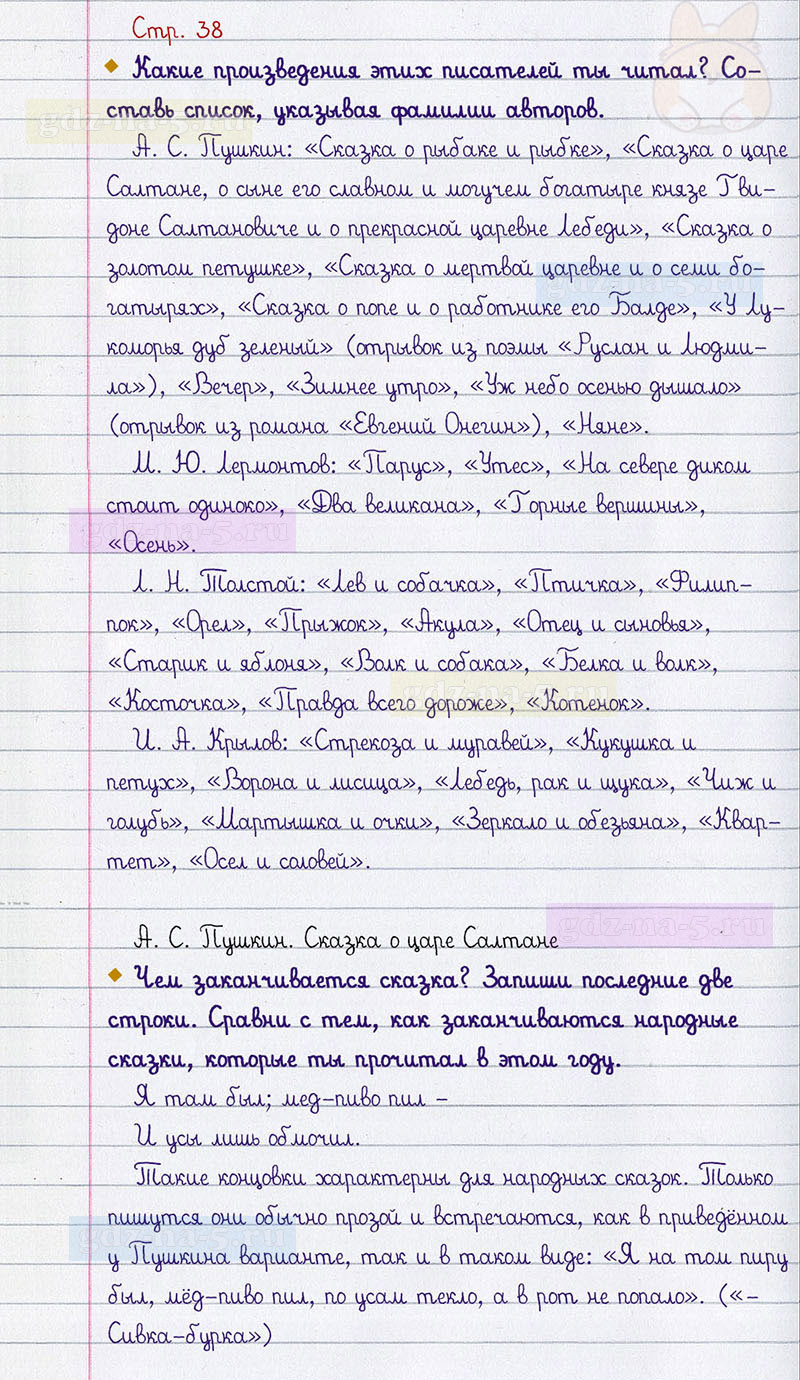 Стр. 38
Какие произведения этих писателей ты читал? Со-
ставь список, указывая фамилии авторов.
gdz-na-5.ru
А. С. Пушкин: «Сказка о рыбаке и рыбке», «Сказка о царе
Салтане, о сыне его славном и могучем богатыре князе Гви-
доне Салтановиче и о прекрасной царевне Лебеди», «Сказка о
золотом петушке», «Сказка о мертвой царевне и о семи бо-
gdz-na-5.ru
гатырях», «Сказка о попе и о работнике его Балде», «У Лу-
коморья дуб зеленый» (отрывок из поэмы «Руслан и Людми-
ла»), «Вечер», «Зимнее утро», «Уж небо осенью дышало»
(отрывок из романа «Евгений Онегин»), «Няне».
М. Ю. Лермонтов: «Парус», «Утес», «На севере диком
стоит одиноко», «Два великана», «Горные вершины»,
gdz-na-5.ru
«Осень».
Л. Н. Толстой: «Лев и собачка», «Птичка», «Филип-
пок», «Орел», «Прыжок», «Акула», «Отец и сыновья»,
«Старик и яблоня», «Волк и собака», «Белка и волк»,
gdz-na-5.ru
«Косточка», «Правда всего дороже», «Котенок».
И. А. Крылов: «Стрекоза и муравей», «Кукушка и
петух», «Ворона и лисица», «Лебедь, рак и щука», «Чиж и
голубь», «Мартышка и очки», «Зеркало и обезьяна», «Квар-
тет», «Осел и соловей».
gdz-na-5.ru
А. С. Пушкин. Сказка о царе Салтане
Чем заканчивается сказка? Запиши последние две
строки. Сравни с тем, как заканчиваются народные
сказки, которые ты прочитал в этом году.
Я там был; мед-пиво пил –
И усы лишь обмочил.
Такие концовки характерны для народных сказок. Только
пишутся они обычно прозой и встречаются, как в приведённом
gdz-na-5.ru
у Пушкина варианте, так и в таком виде: «Я на том пиру
был, мёд-пиво пил, по усам текло, а в рот не попало». («-
Сивка-бурка»)